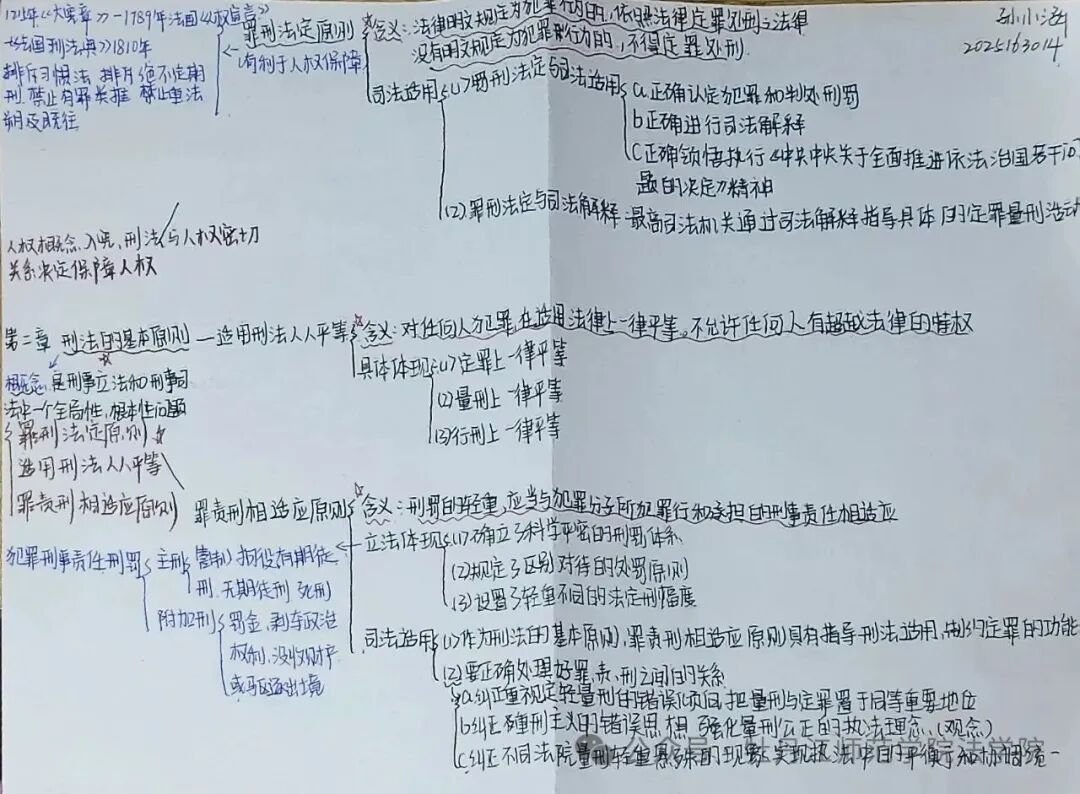 1215年《大宪章》-1789年法国《人权宣言》
-《法国刑法典》1810年
排斥习惯法 排斥绝对不定期
刑 禁止有罪类推 禁止重法
溯及既往
罪刑法定原则
有利于人权保障
含义:法律明文规定为犯罪行为的,依照法律定罪处刑;法律
没有明文规定为犯罪行为的,不得定罪处刑.
司法适用
(1)罪刑法定与司法适用
a正确认定犯罪和判处刑罚
b正确进行司法解释
C正确领悟执行《中共中央关于全面推进依法治国若干问
题的决定》精神
(2)罪刑法定与司法解释-最高司法机关通过司法解释指导具体的定罪量刑活动
孙小涵
2025163014
人权概念入宪,刑法与人权密切
关系决定保障人权
第二章 刑法的基本原则
适用刑法人人平等
含义:对任何人犯罪,在适用法律上一律平等。不允许任何人有超越法律的特权
具体体现
(1)定罪上一律平等
(2)量刑上一律平等
(3)行刑上一律平等
概念:是刑事立法和刑事司
法中一个全局性,根本性问题
罪刑法定原则
适用刑法人人平等
罪责刑相适应原则
罪责刑相适应原则
含义:刑罚的轻重,应当与犯罪分子所犯罪行和承担的刑事责任相适应
立法体现
(1)确立了科学严密的刑罚体系
(2)规定了区别对待的处罚原则
(3)设置了轻重不同的法定刑幅度
犯罪刑事责任刑罚
主刑
管制 拘役 有期徒
刑 无期徒刑 死刑
附加刑
罚金,剥夺政治
权利,没收财产
或驱逐出境
司法适用
(1)作为刑法的基本原则,罪责刑相适应原则具有指导刑法适用,制约定罪的功能
(2)要正确处理好罪、责、刑之间的关系
a纠正重视定轻量刑的错误倾向,把量刑与定罪置于同等重要地位
b纠正重刑主义的错误思想 强化量刑公正的执法理念(观念)
C纠正不同法院量刑轻重悬殊的现象,实现执法中的平衡和协调统一
公众号 · 牡丹江师范学院法学院